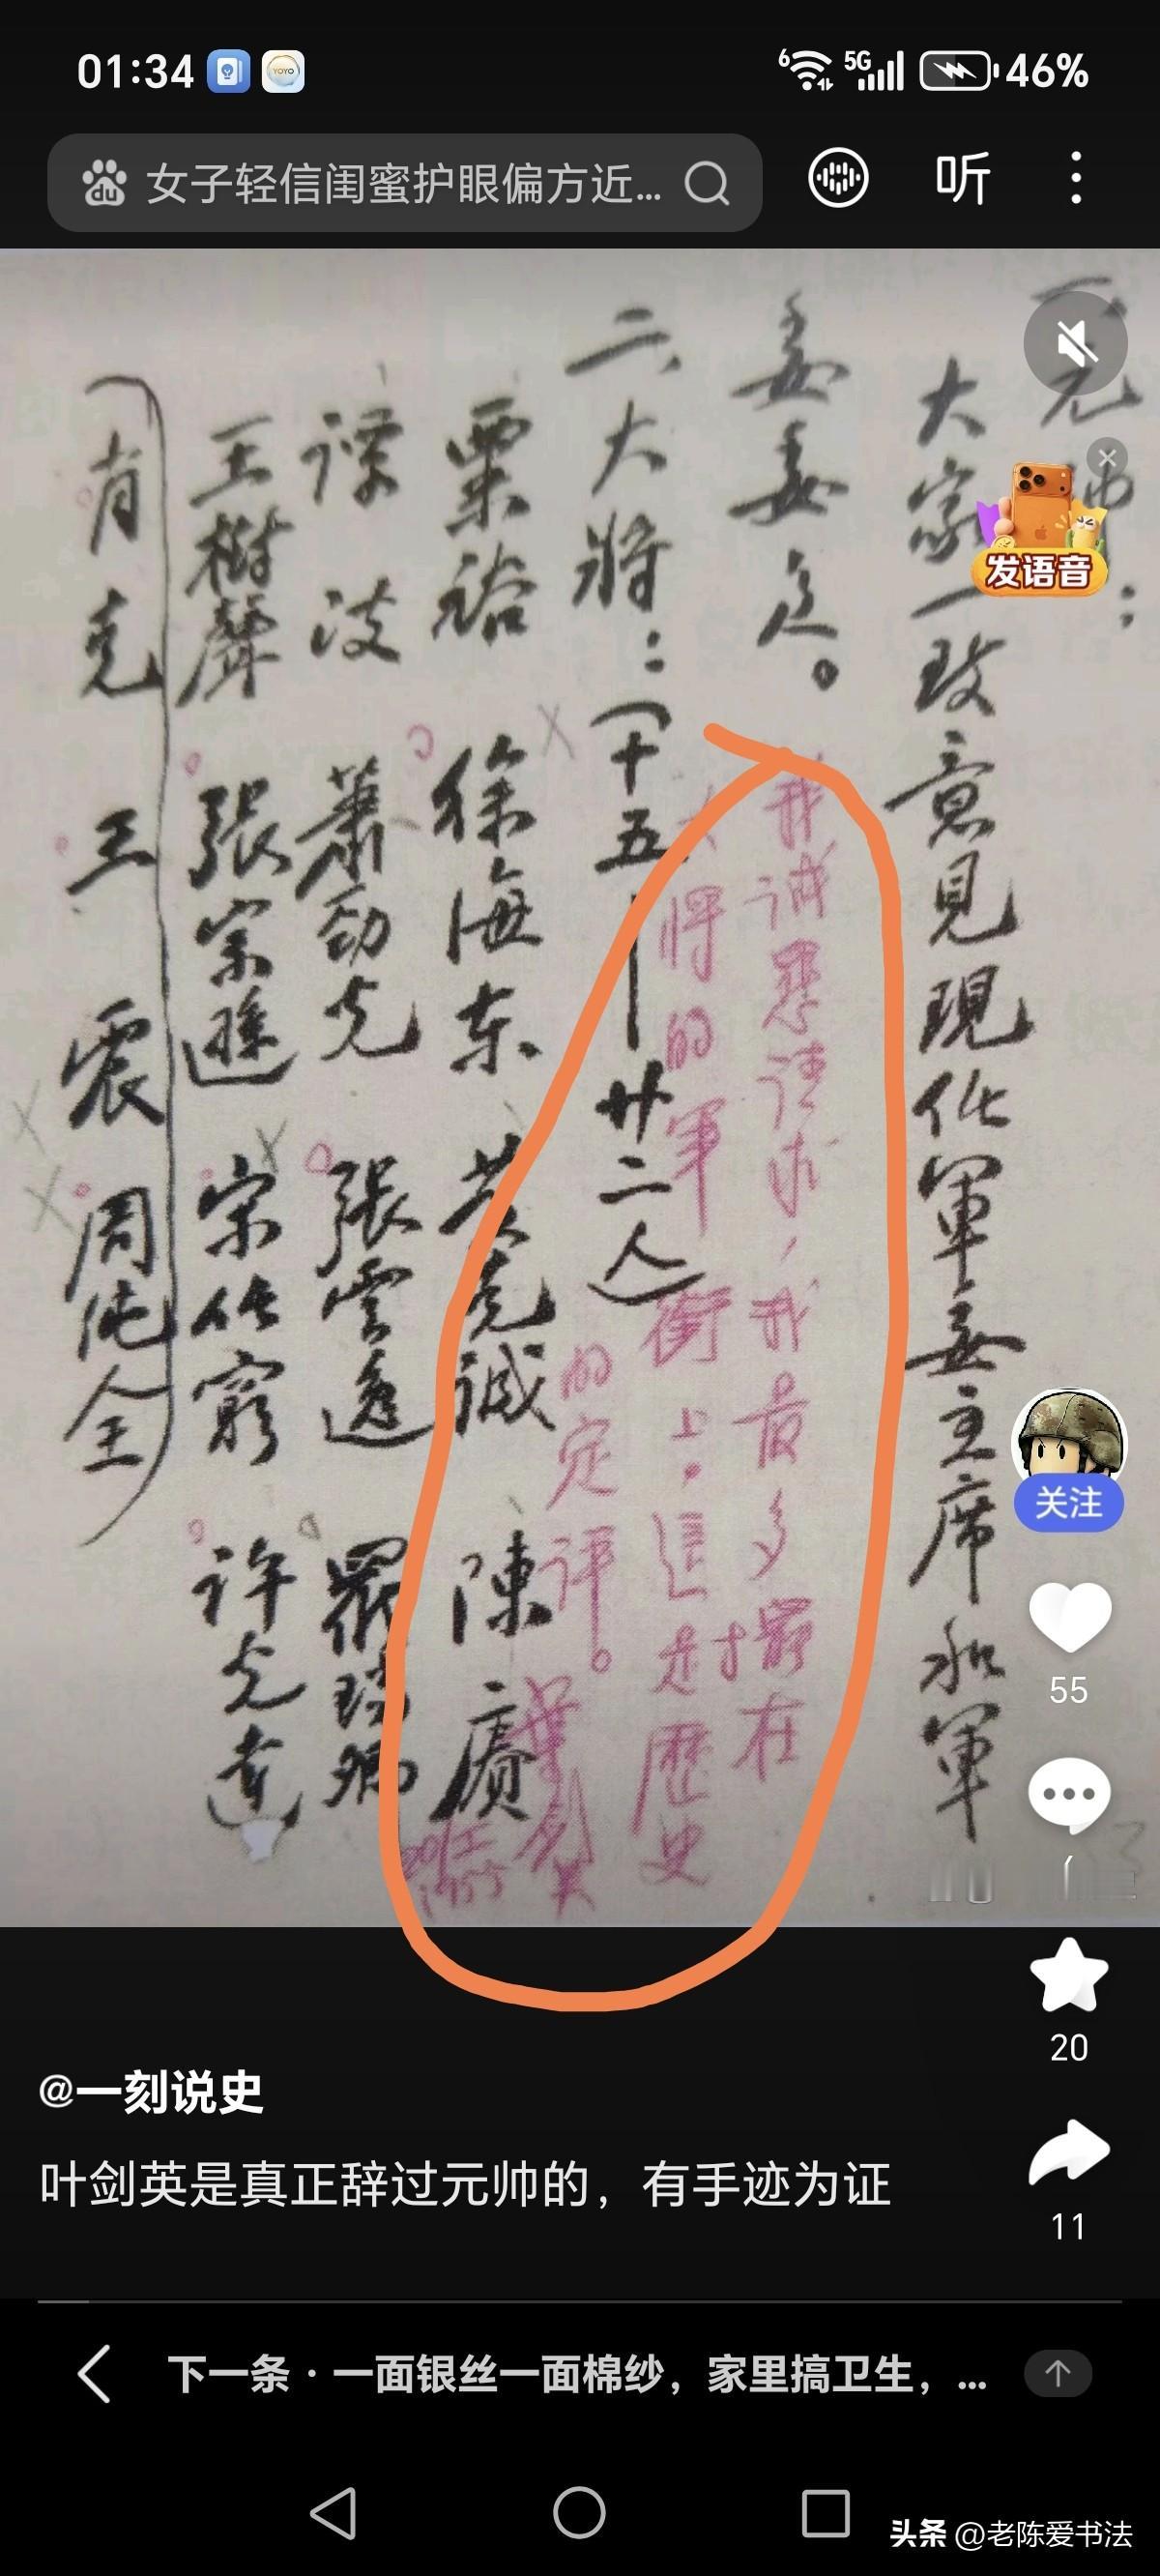 01:34
6 5G 46%
女子轻信闺蜜护眼偏方近...
听
元帅:
大家一致意見現任軍委主席和軍
委委員。
我诚恳请求,我最多摆在
大将的軍衔上。這才对歷史
的定评。
葉剑英
二、大將:(十五—廿二人)
粟裕 徐海东 黄克誠 陳賡
譚政 萧劲光 張雲逸 羅瑞卿
王樹聲 張宗遜 宋任窮 许光達
(肖克 王震 周纯全)
发语音
关注
55
20
11
@一刻说史
叶剑英是真正辞过元帅的,有手迹为证
下一条·一面银丝一面棉纱,家里搞卫生,...
头条 @老陈爱书法